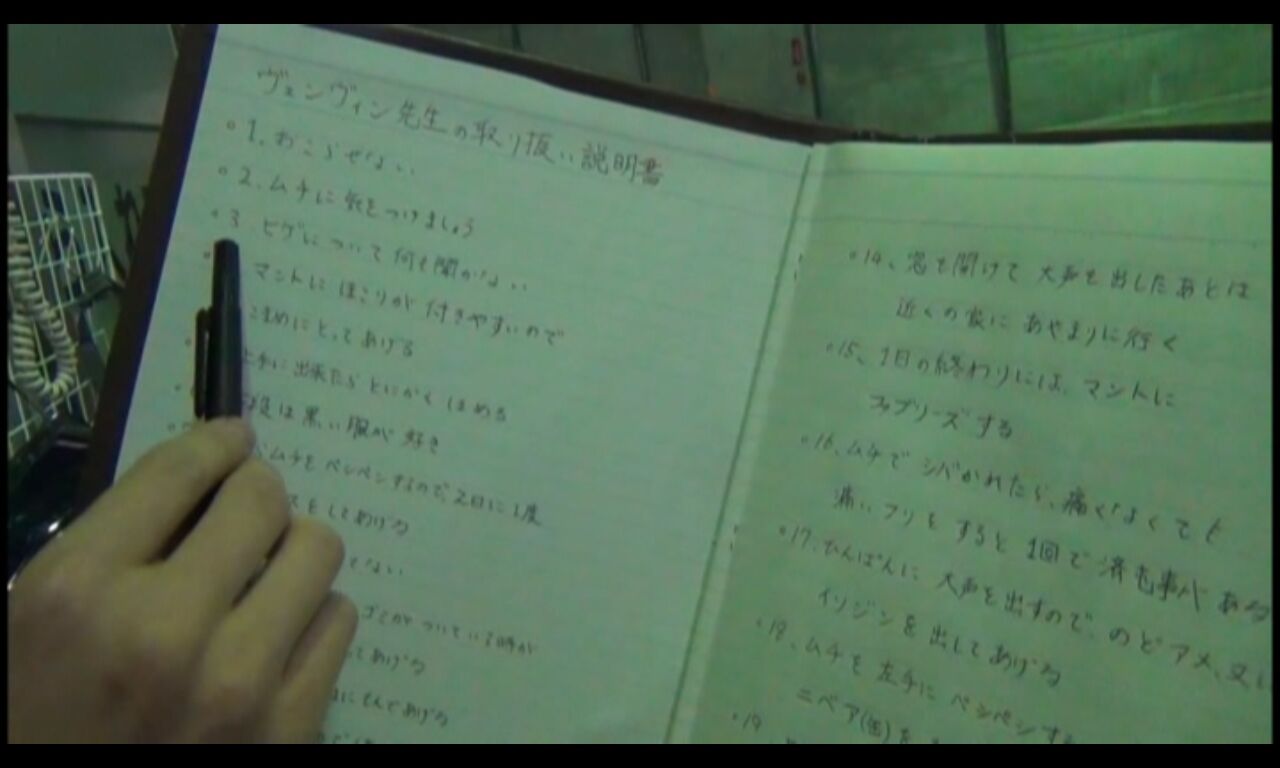 ヴェンヴィン先生の取り扱い説明書
1、おこらせない
2、ムチに気をつけましょう
3、ヒゲについて何も聞かない
マントにほこりが付きやすいので
こまめにとってあげる
上手に出来たらとにかくほめる
は黒い服が好き
ムチをペシペシするので、2日に1度
スをしてあげる
ない
ゴミがついている時が
ってあげる
てあげる
14、窓を開けて大声を出したあとは
近くの家にあやまりに行く
15、1日の終わりには、マントに
ファブリーズする
16、ムチでシバかれたら、痛くなくても
痛いフリをすると1回で済む事がある
17、ひんぱんに大声を出すので、のどアメ、又は
イソジンを出してあげる
18、ムチを左手にペシペシする
ニベア(缶)を
19